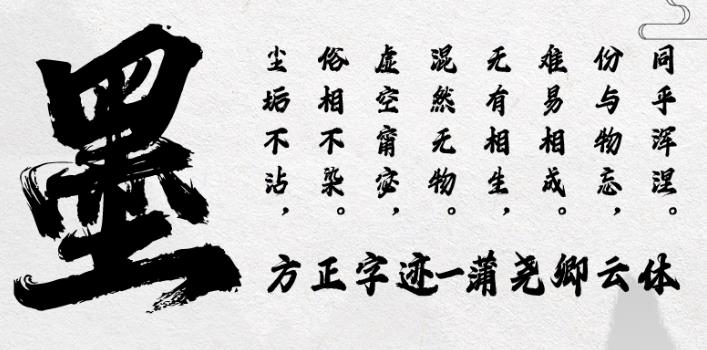 墨
尘垢不沾，
俗相不染。
虚空甯宓，
混然无物。
无有相生，
难易相成。
份与物忘，
同乎浑涅。
方正字迹—蒲尧卿云体